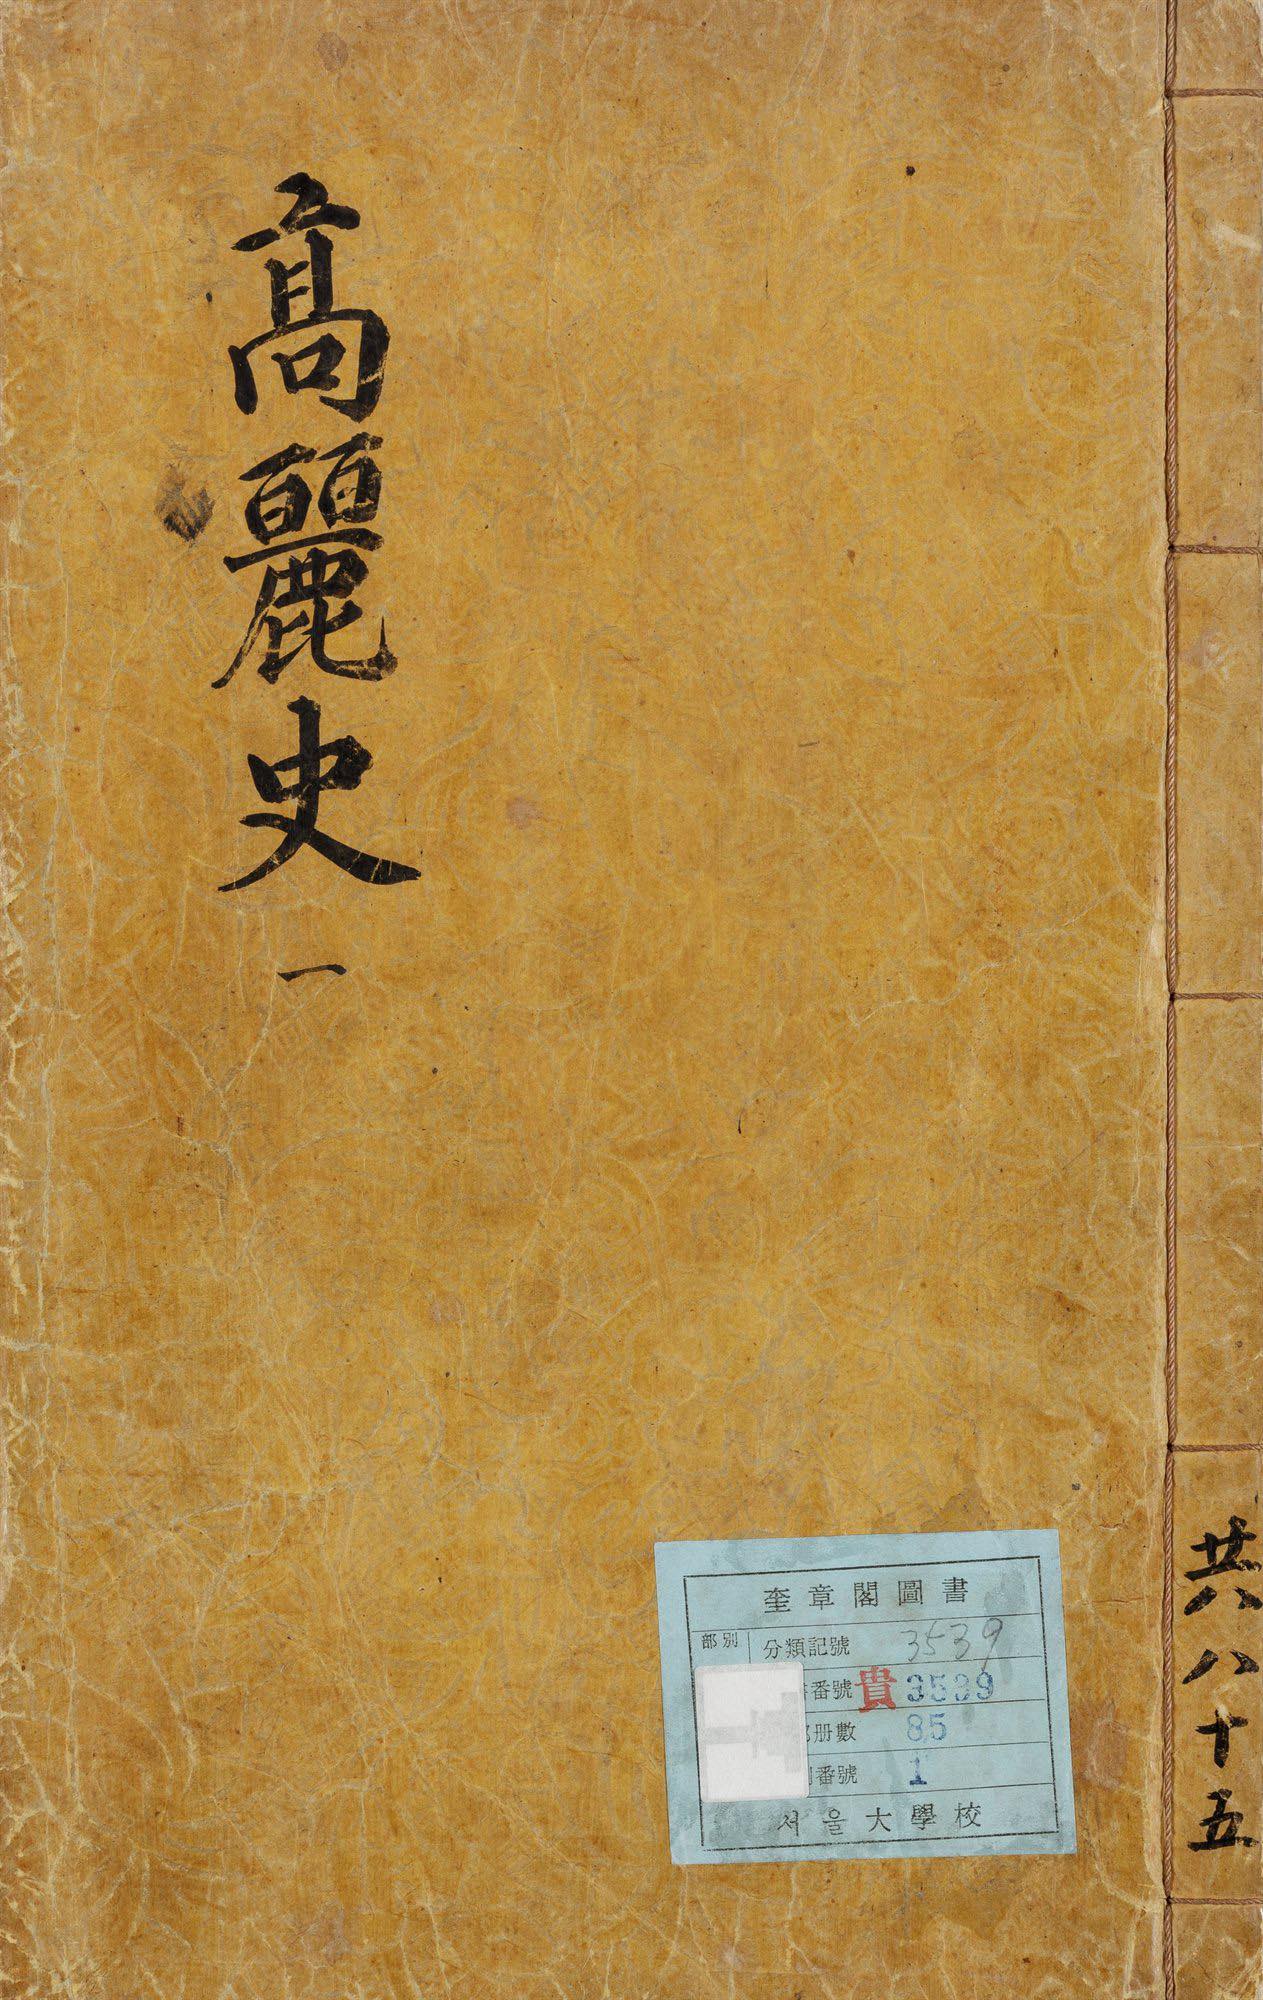 高麗史
一
共八十五
奎章閣圖書
部別
分類記號 3539
番號 貴 3539
册數 85
番號 1
서울大學校